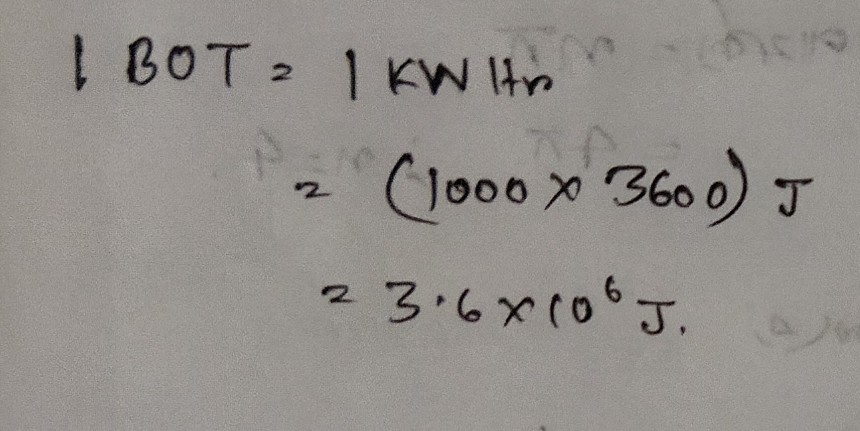 1 BOT = 1 KW Hr
= (1000 × 3600) J
= 3.6 × 10⁶ J.